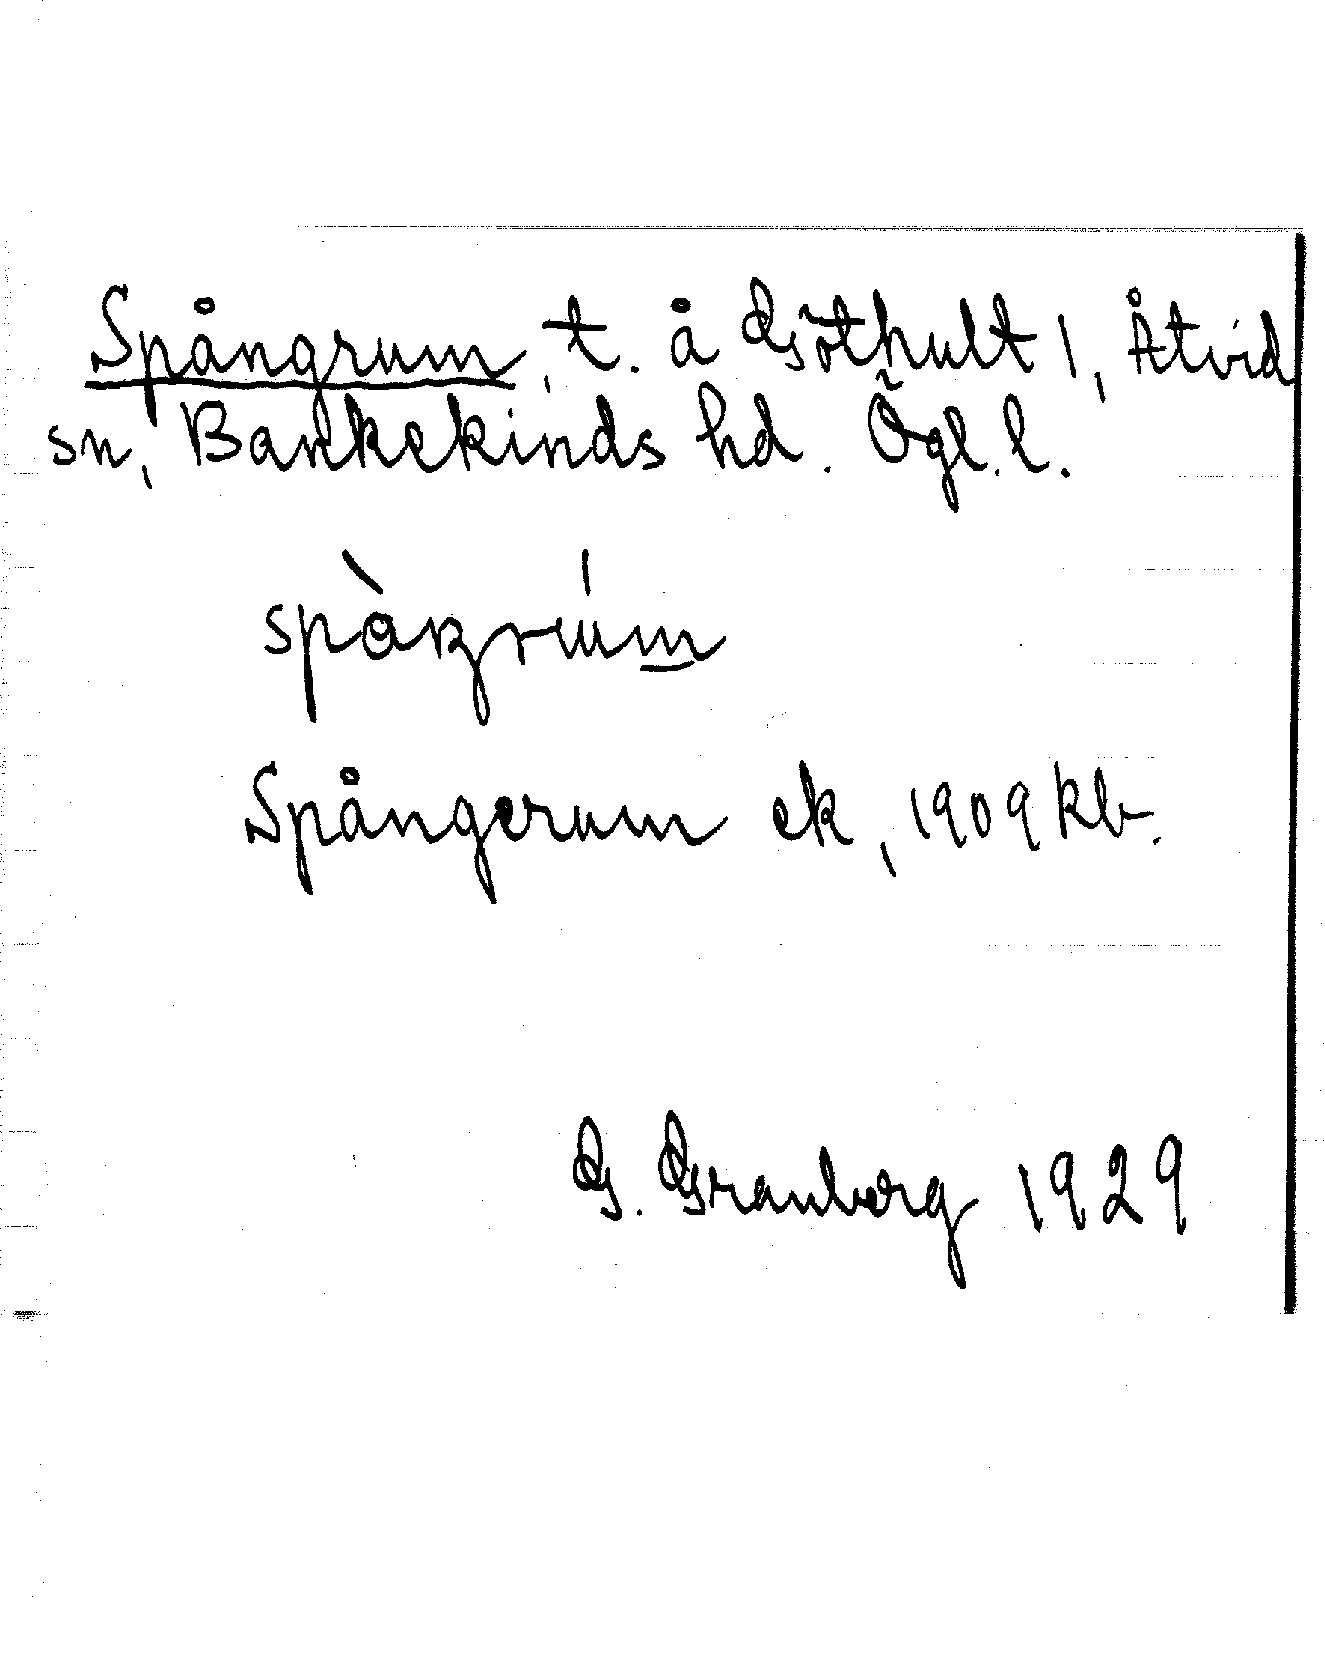 Spångrum, t. å Göthult 1, Åtvid
sn, Bankekinds hd. Ögl. l.
Spångerum ek, 1909 kb.
G. Granberg 1929